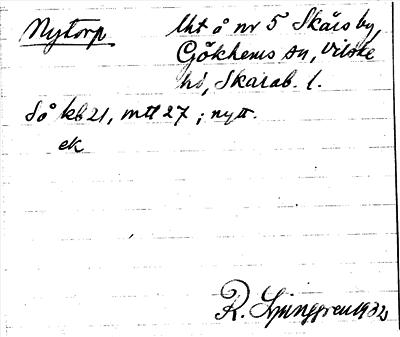 Nytorp
Lht å nr 5 Skårs by,
Gökhems sn, Vilske
hd, Skarab. l.
Så kb 21, mtl 27; nytt.
ek
R. Ljunggren 1932